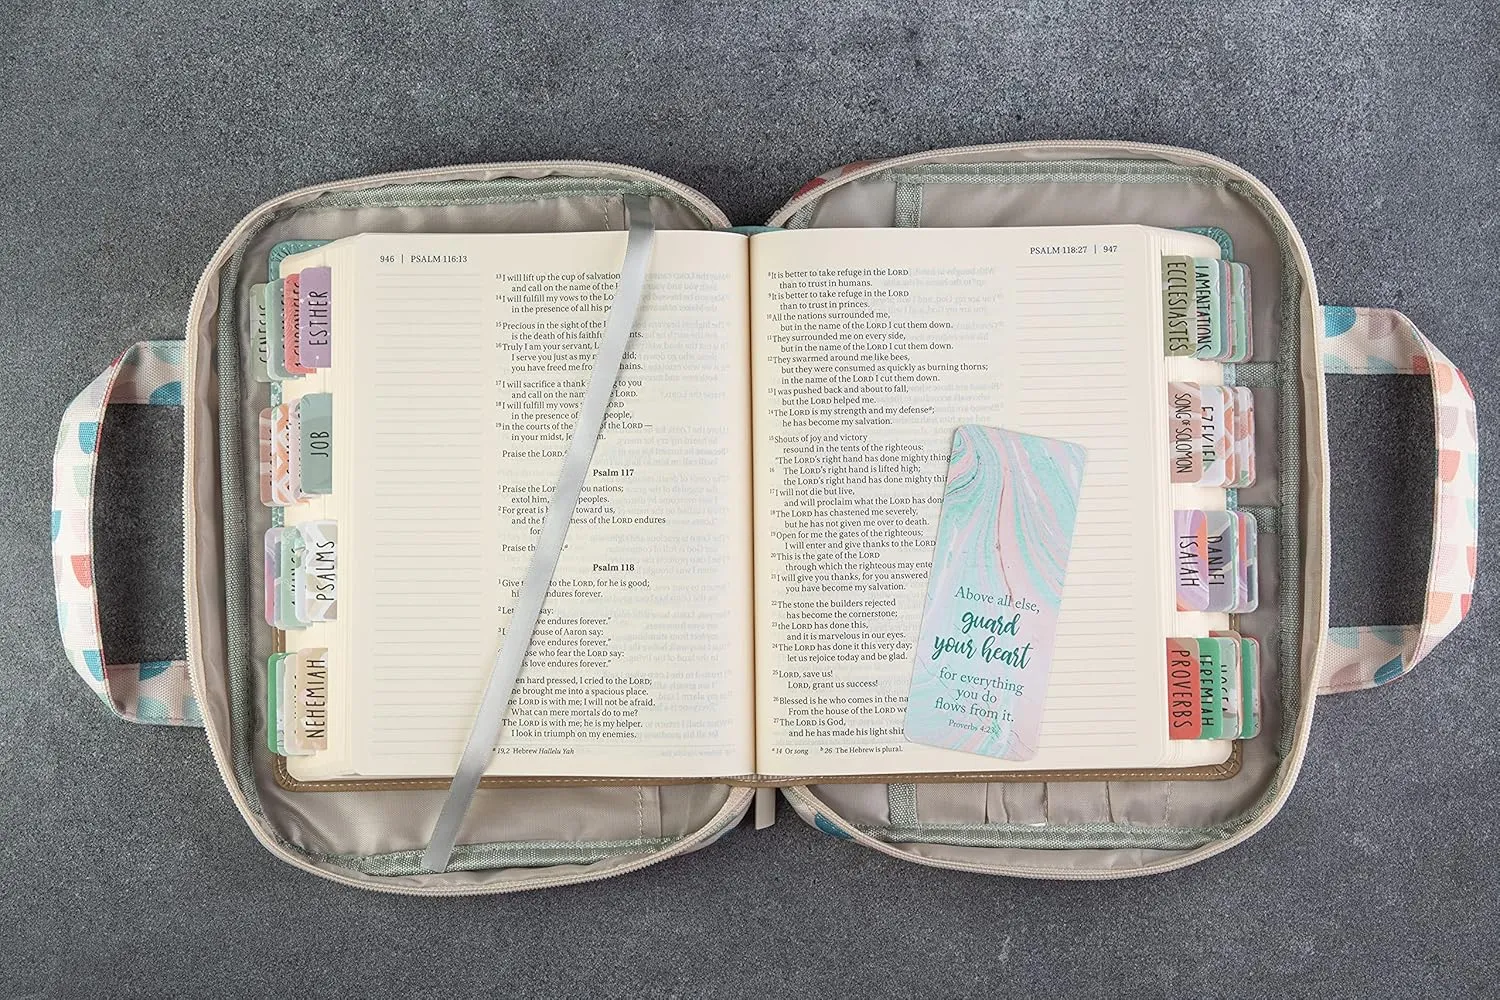 946 | PSALM 116:13
13 I will lift up the cup of salvation
and call on the name of the
14 I will fulfill my vows to the
in the presence of all his
15 Precious in the sight of the
is the death of his faithful
16 Truly I am your servant,
I serve you just as my did;
you have freed me from chains.
17 I will sacrifice a thank to you
and call on the name of the LORD.
18 I will fulfill my vows LORD
in the presence of people,
19 in the courts of the of the LORD —
in your midst,
Praise the LORD.
Psalm 117
1 Praise the nations;
extol him, peoples.
2 For great is toward us,
and the of the LORD endures
Praise
Psalm 118
1 Give to the LORD, for he is good;
endures forever.
2 Let say:
love endures forever."
3 house of Aaron say:
love endures forever."
who fear the LORD say:
love endures forever."
hard pressed, I cried to the LORD;
he brought me into a spacious place.
The LORD is with me; I will not be afraid.
What can mere mortals do to me?
The LORD is with me; he is my helper.
I look in triumph on my enemies.
a 19,2 Hebrew Hallelu Yah
PSALM 118:27 | 947
8 It is better to take refuge in the LORD
than to trust in humans.
9 It is better to take refuge in the LORD
than to trust in princes.
10 All the nations surrounded me,
but in the name of the LORD I cut them down.
11 They surrounded me on every side,
but in the name of the LORD I cut them down.
12 They swarmed around me like bees,
but they were consumed as quickly as burning thorns;
in the name of the LORD I cut them down.
13 I was pushed back and about to fall,
but the LORD helped me.
14 The LORD is my strength and my defense a;
he has become my salvation.
15 Shouts of joy and victory
resound in the tents of the righteous:
"The LORD's right hand has done mighty
16 The LORD's right hand is lifted high;
the LORD's right hand has done mighty
17 I will not die but live,
and will proclaim what the LORD has
18 The LORD has chastened me severely,
but he has not given me over to death.
19 Open for me the gates of the righteous;
I will enter and give thanks to the LORD
20 This is the gate of the LORD
through which the righteous may
21 I will give you thanks, for you answered
you have become my salvation.
22 The stone the builders rejected
has become the cornerstone;
23 the LORD has done this,
and it is marvelous in our eyes.
24 The LORD has done it this very day;
let us rejoice today and be glad.
25 LORD, save us!
LORD, grant us success!
26 Blessed is he who comes in the
From the house of the LORD
27 The LORD is God,
and he has made his light
a 14 Or song b 26 The Hebrew is plural.
Above all else,
guard
your heart
for everything
you do
flows from it.
Proverbs 4:23
GENESIS
ESTHER
JOB
PSALMS
NEHEMIAH
ECCLESIASTES
LAMENTATIONS
SONG OF SOLOMON
EZEKIEL
ISAIAH
DANIEL
PROVERBS
JEREMIAH
HOSEA